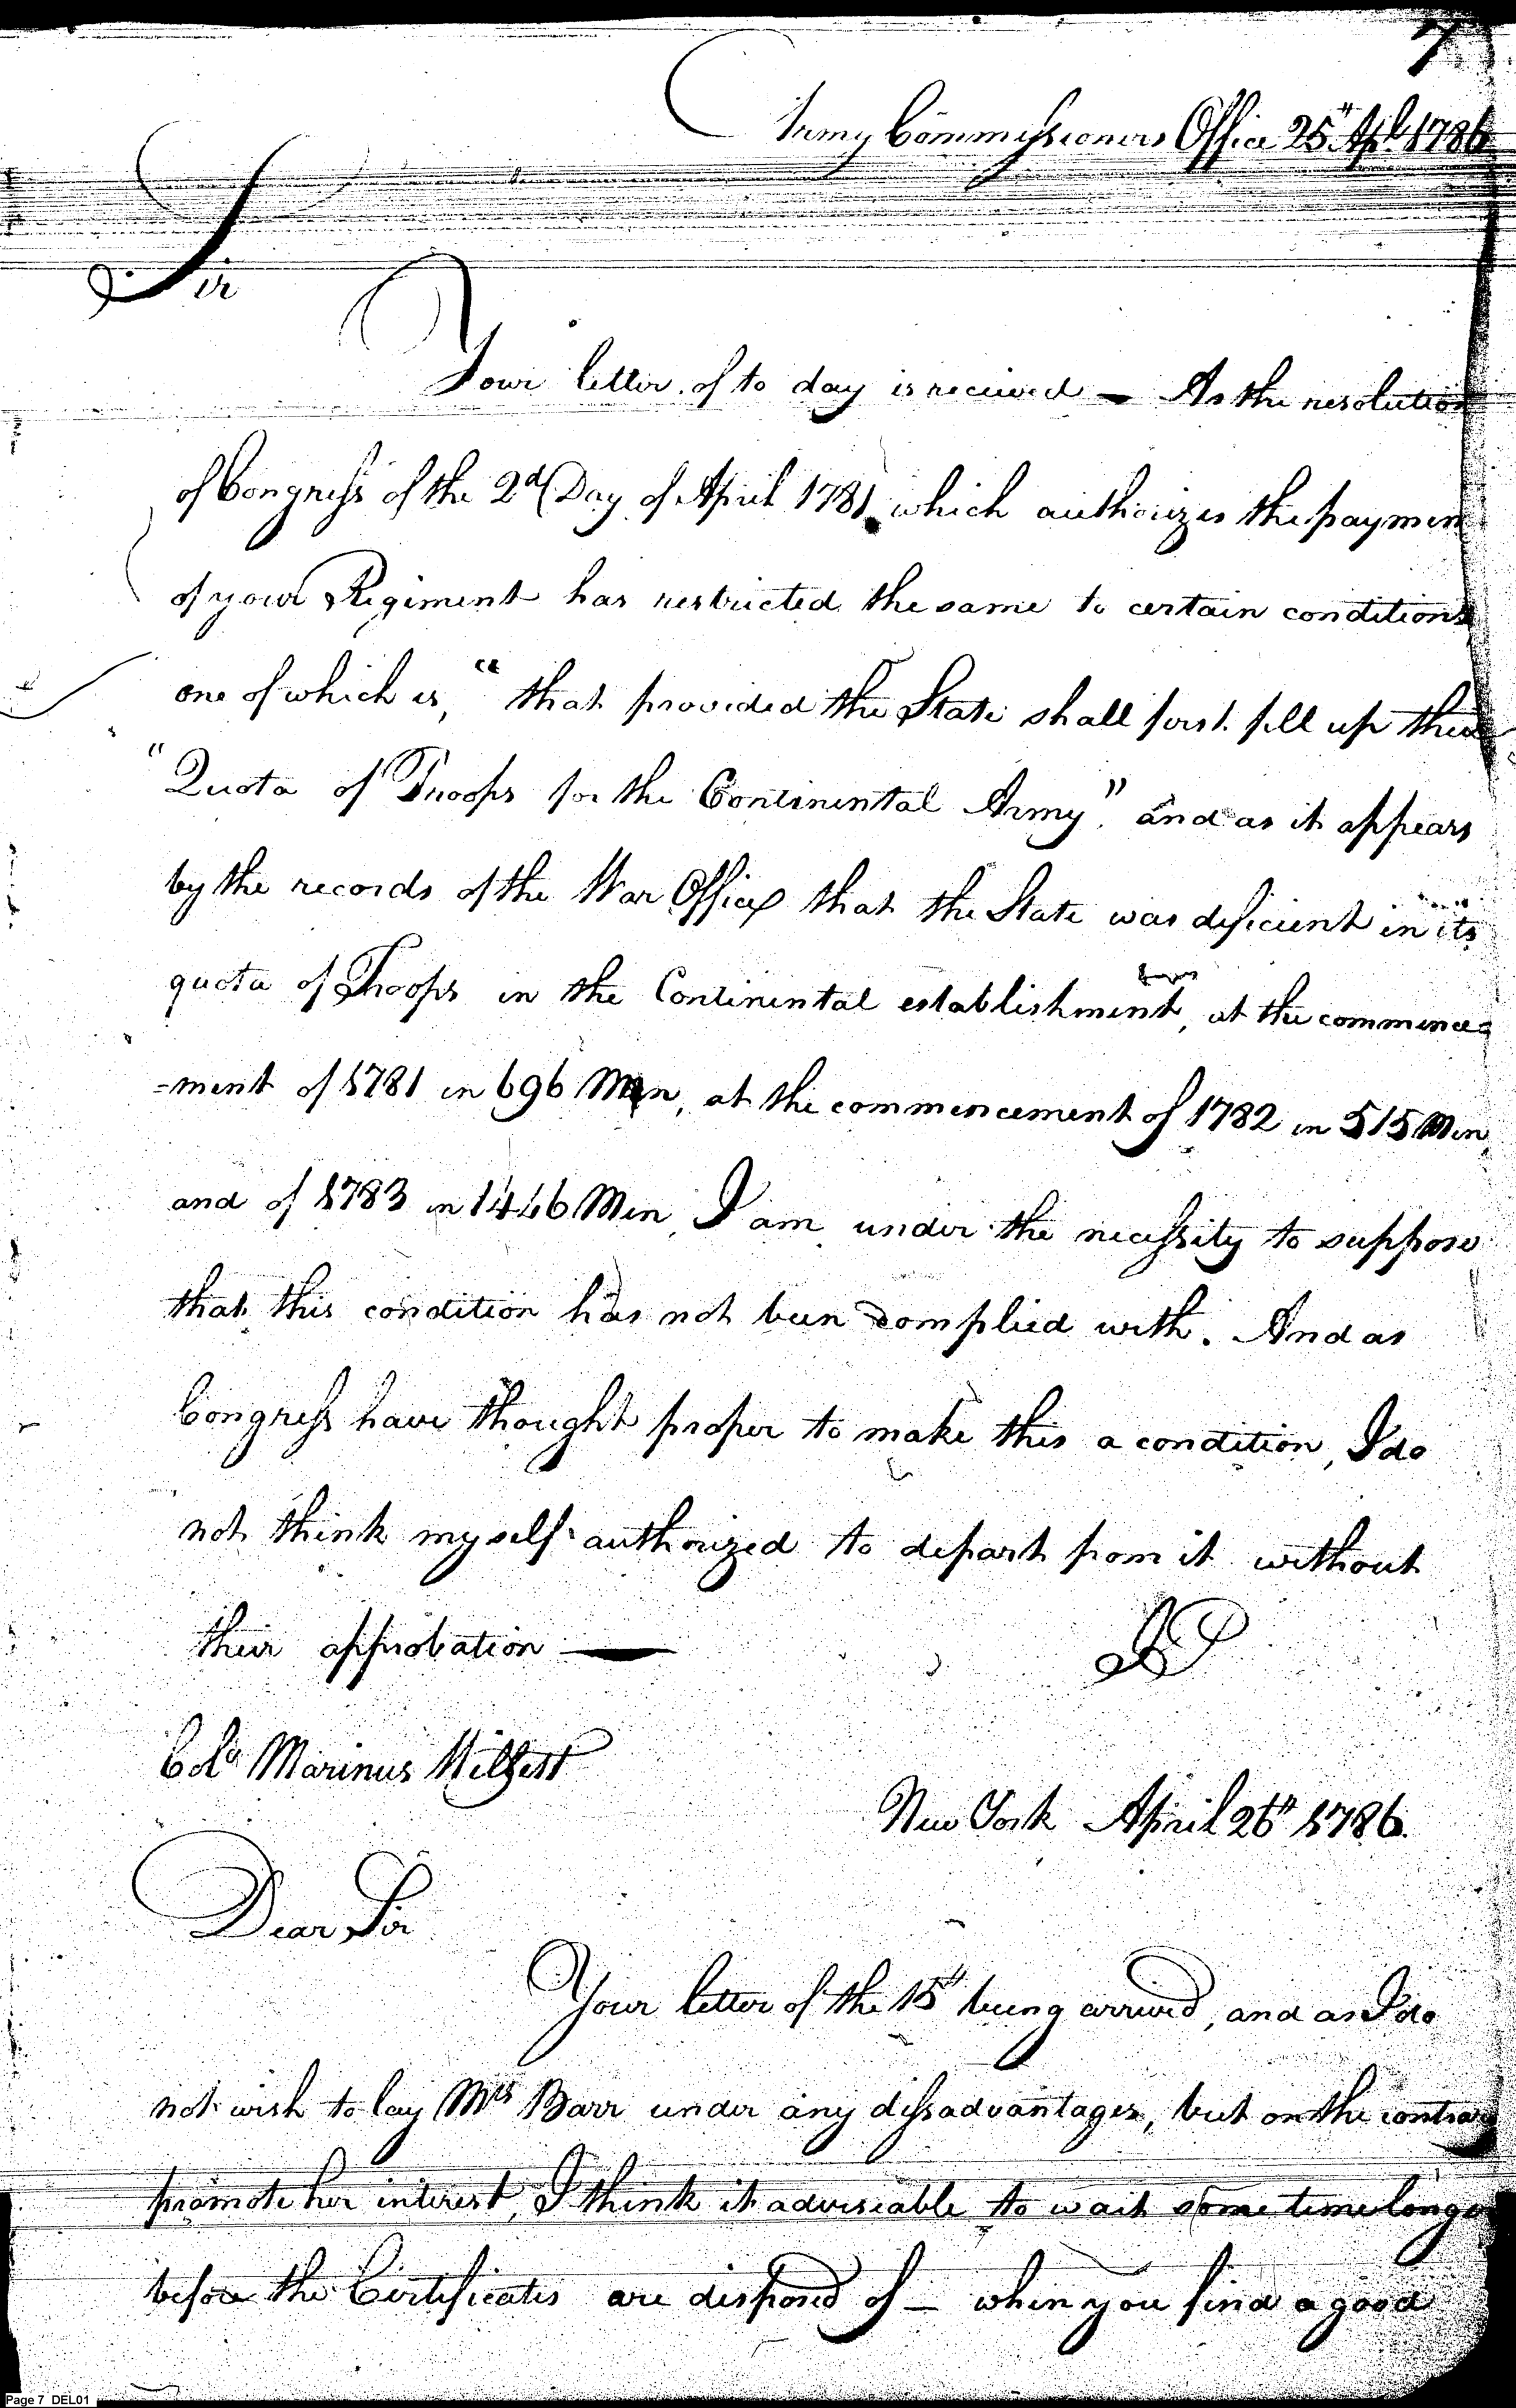 7
Army Commissioners Office 25th Apl 1786
Sir
Your letter of to day is received — As the resolution
of Congress of the 2d Day of April 1781 which authorizes the paymen
of your Regiment has restricted the same to certain conditions
one of which is, "that provided the State shall first fill up their
"Quota of Troops for the Continental Army". and as it appears
by the records of the War Office that the State was deficient in its
quota of Troops in the Continental establishment, at the commence=
=ment of 1781 in 696 Men, at the commencement of 1782 in 515 Men
and of 1783 in 1446 Men, I am under the necessity to suppose
that this condition has not been complied with. And as
Congress have thought proper to make this a condition, I do
not think myself authorized to depart from it without
their approbation —
JP
Colo Marinus Willett
New York April 26th 1786.
Dear Sir
Your letter of the 15th being arrived, and as I do
not wish to lay Mrs Barr under any dissadvantages, but on the contrary
promote her interest, I think it adviseable to wait some time longer
before the Certificates are disposed of — when you find a good
Page 7 DEL01